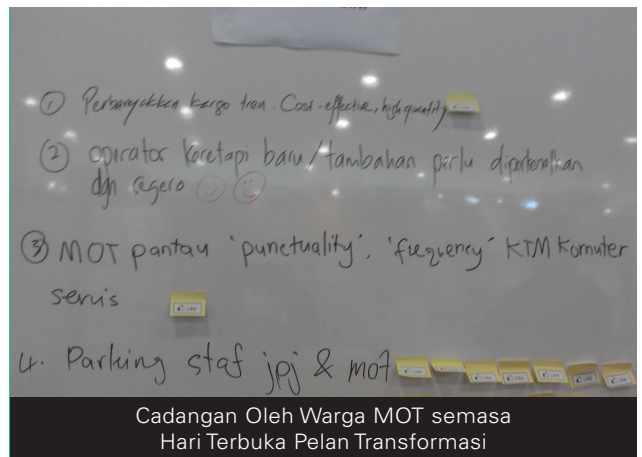 ① Perbanyakkan kargo tren. Cost-effective, high quantity
② operator keretapi baru/tambahan perlu diperkenalkan
dgn segera
③ MOT pantau 'punctuality', 'frequency' KTM Komuter
servis
4. Parking staf jpj & mot
Like
Like
Like
Like
Like
Like
Like
Cadangan Oleh Warga MOT semasa
Hari Terbuka Pelan Transformasi